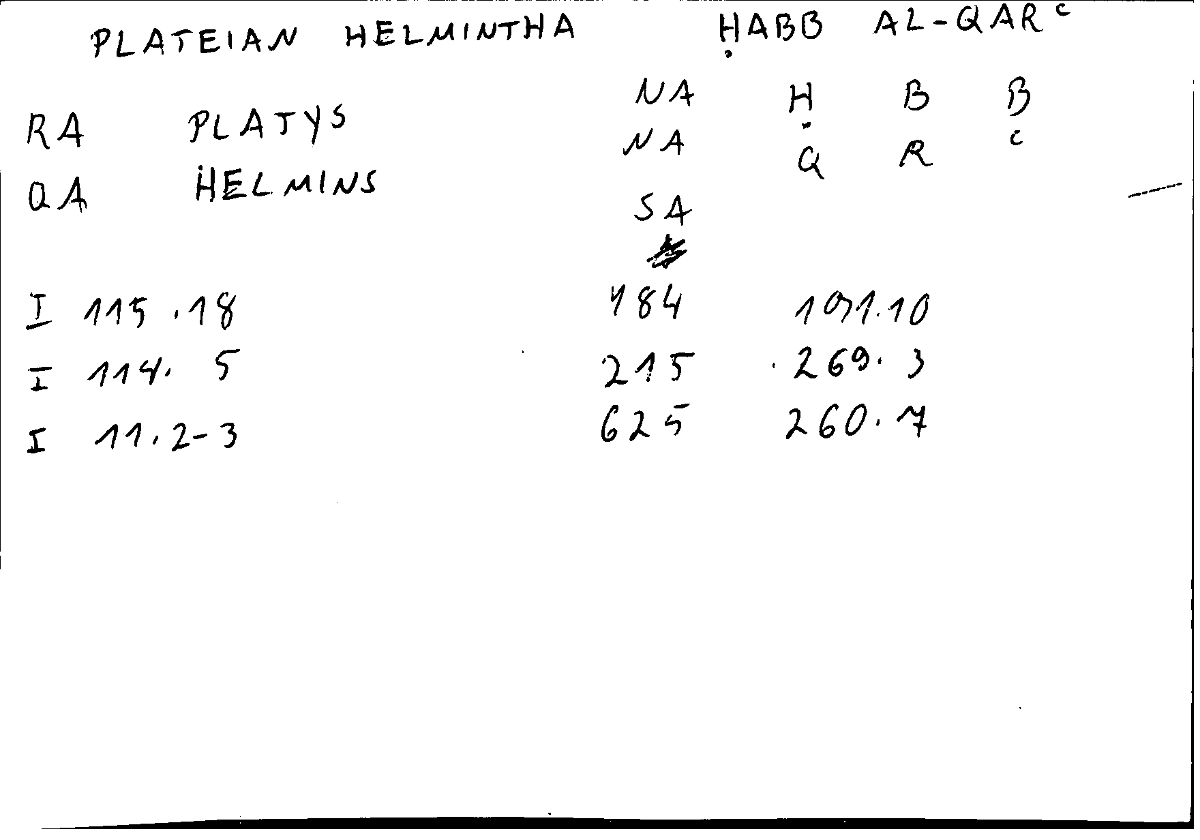 PLATEIAN HELMINTHA ḤABB AL-QARᶜ
RA PLATYS NA Ḥ B B
QA HELMINS NA Q R ᶜ
SA
I 115.18 184 191.10
I 114. 5 215 269.3
I 11.2-3 625 260.7